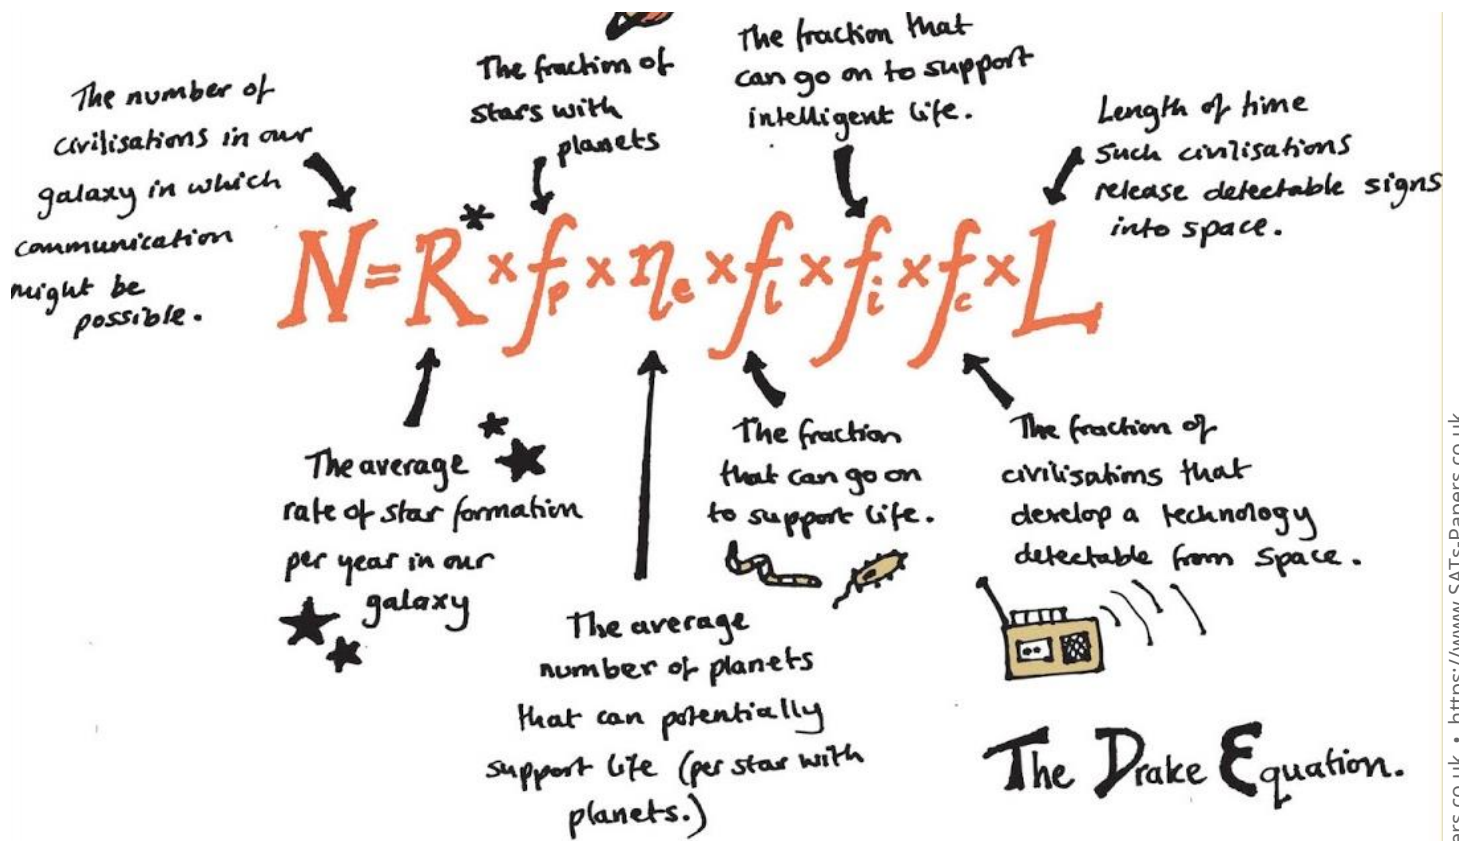 The number of
civilisations in our
galaxy in which
communication
might be
possible.
The fraction of
stars with
planets
The fraction that
can go on to support
intelligent life.
Length of time
such civilisations
release detectable signs
into space.
N=R* × fp × ηe × fl × fi × fc × L
The average
rate of star formation
per year in our
galaxy
The average
number of planets
that can potentially
support life (per star with
planets.)
The fraction
that can go on
to support life.
The fraction of
civilisations that
develop a technology
detectable from space.
The Drake Equation.
ers.co.uk • https://www.SATs-Papers.co.uk